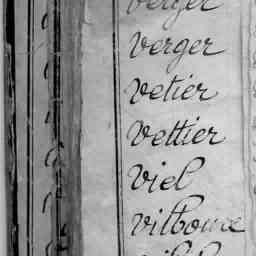 verger
verger
vetier
vettier
viel